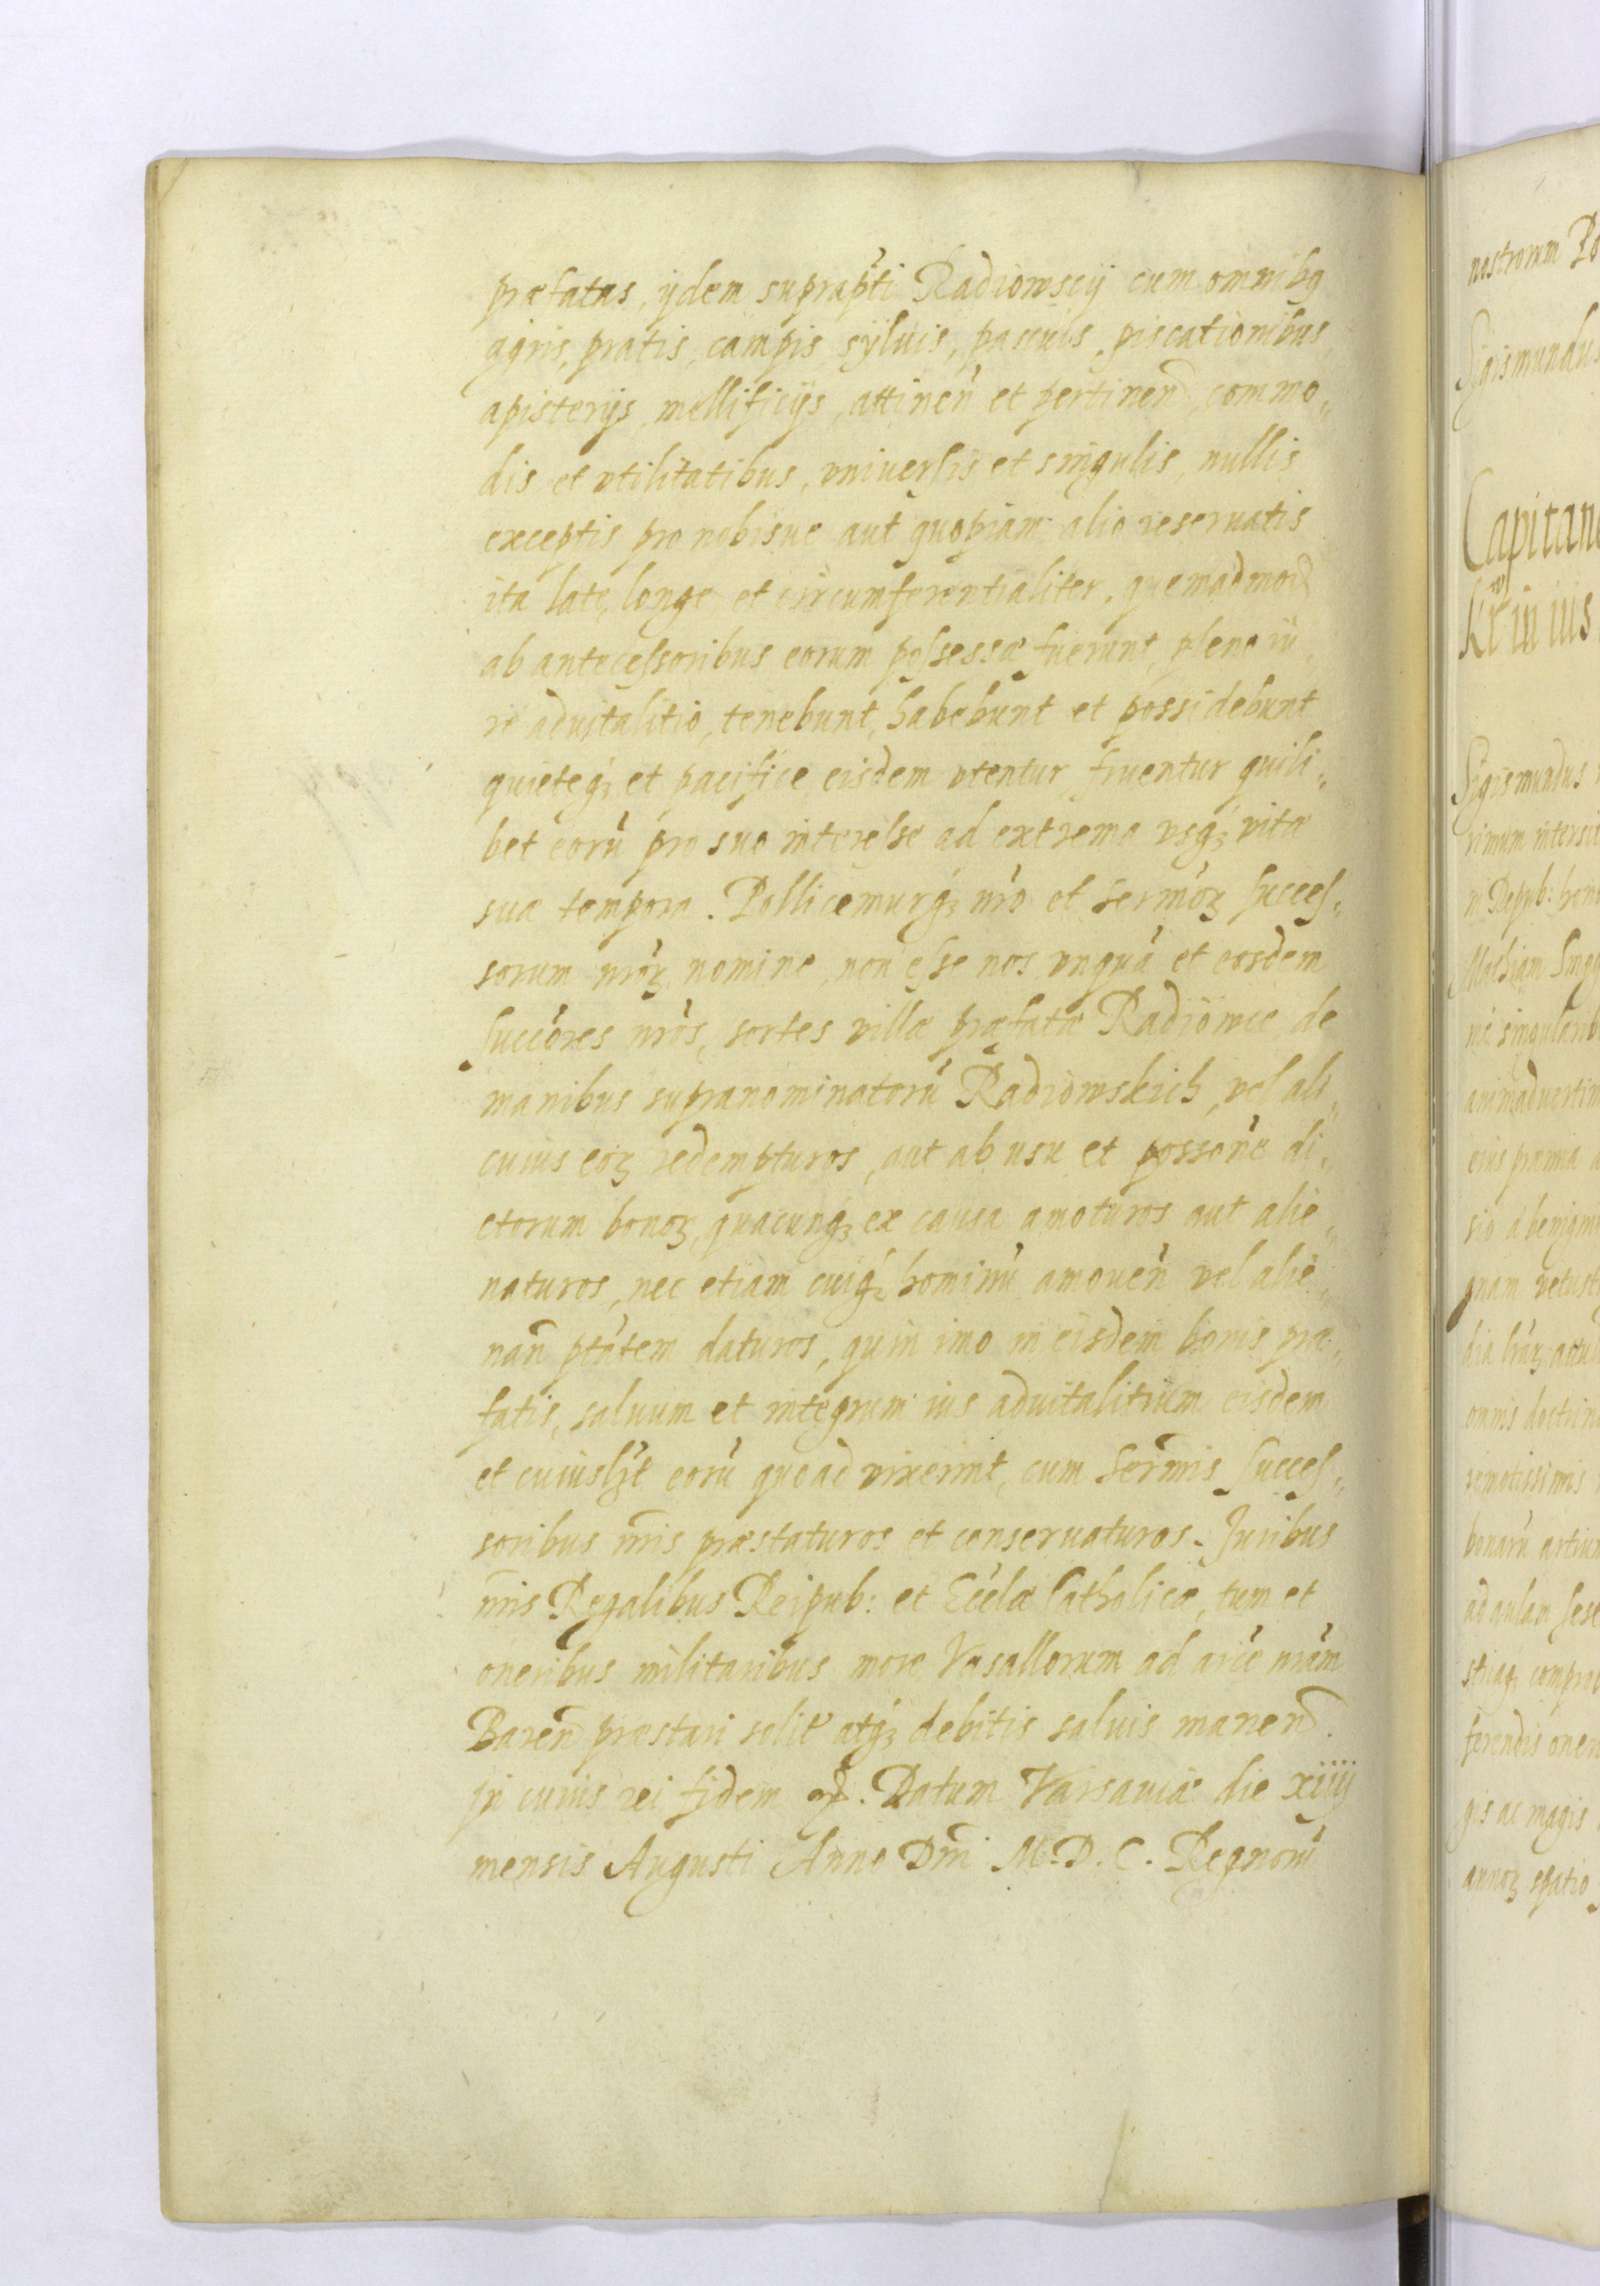 præfatas, ijdem suprap̃ti Radiowscij cum omnibꝫ
agris, pratis, campis, syluis, pascuis, piscationibus,
apisterijs, mellificijs, attineñ et pertineñ, commo„
dis et vtilitatibus, vniuersis et singulis, nullis
exceptis pro nobisue aut quopiam alio reseruatis
ita late, longe et circumferentialiter, quemadmod
ab antecessoribus eorum possessæ fuerunt, pleno iu„
re aduitalitio, tenebunt, habebunt et possidebunt
quieteqꝫ et pacifice eisdem vtentur fruentur quili„
bet eorũ pro suo interesse ad extrema vsqꝫ vitæ
suæ tempora. Pollicemurqꝫ nr̃o et Serm̃oꝝ Succes„
sorum nr̃oꝝ nomine, non esse nos vnquã et eosdem
Succ̃ores nr̃os, sortes villæ præfatæ Radiowce de
manibus supranominatorũ Radiowskich, vel ali„
cuius eoꝝ redempturos, aut ab usu et posson̄e di„
ctorum bonoꝝ, quacunqꝫ ex causa amoturos aut alie„
naturos, nec etiam cuiqꝫ hominũ amoueñ vel alie„
nañ ptãtem daturos, quin imo in eisdem bonis præ„
fatis, saluum et integrum ius aduitalitium eisdem
et cuiuslibt eorũ quoad vixerint, cum Serm̃is Succes„
soribus nr̃is præstaturos et conseruaturos. Juribus
nr̃is Regalibus Reipub: et Eccl̃æ Catholicæ, tum et
oneribus militaribus more Vasallorum ad arc̃e nr̃am
Bareñ præstari solit atqꝫ debitis saluis maneñ.
In cuius rei fidem &. Datum Varsauiæ die xiiij
mensis Augusti Anno Dñi M.D.C. Regnorũ
nostrorum Po
Sigismundus
Capitane
in ius
Sigismundus
rimum intersit
ni Repub: bon
Mathiam
animaduertim
quam vetust
omnis doctrin
remotissimis
bonarũ artiu
ad aulam sese
ferendis oner
gis ac magis
annoꝝ spatio